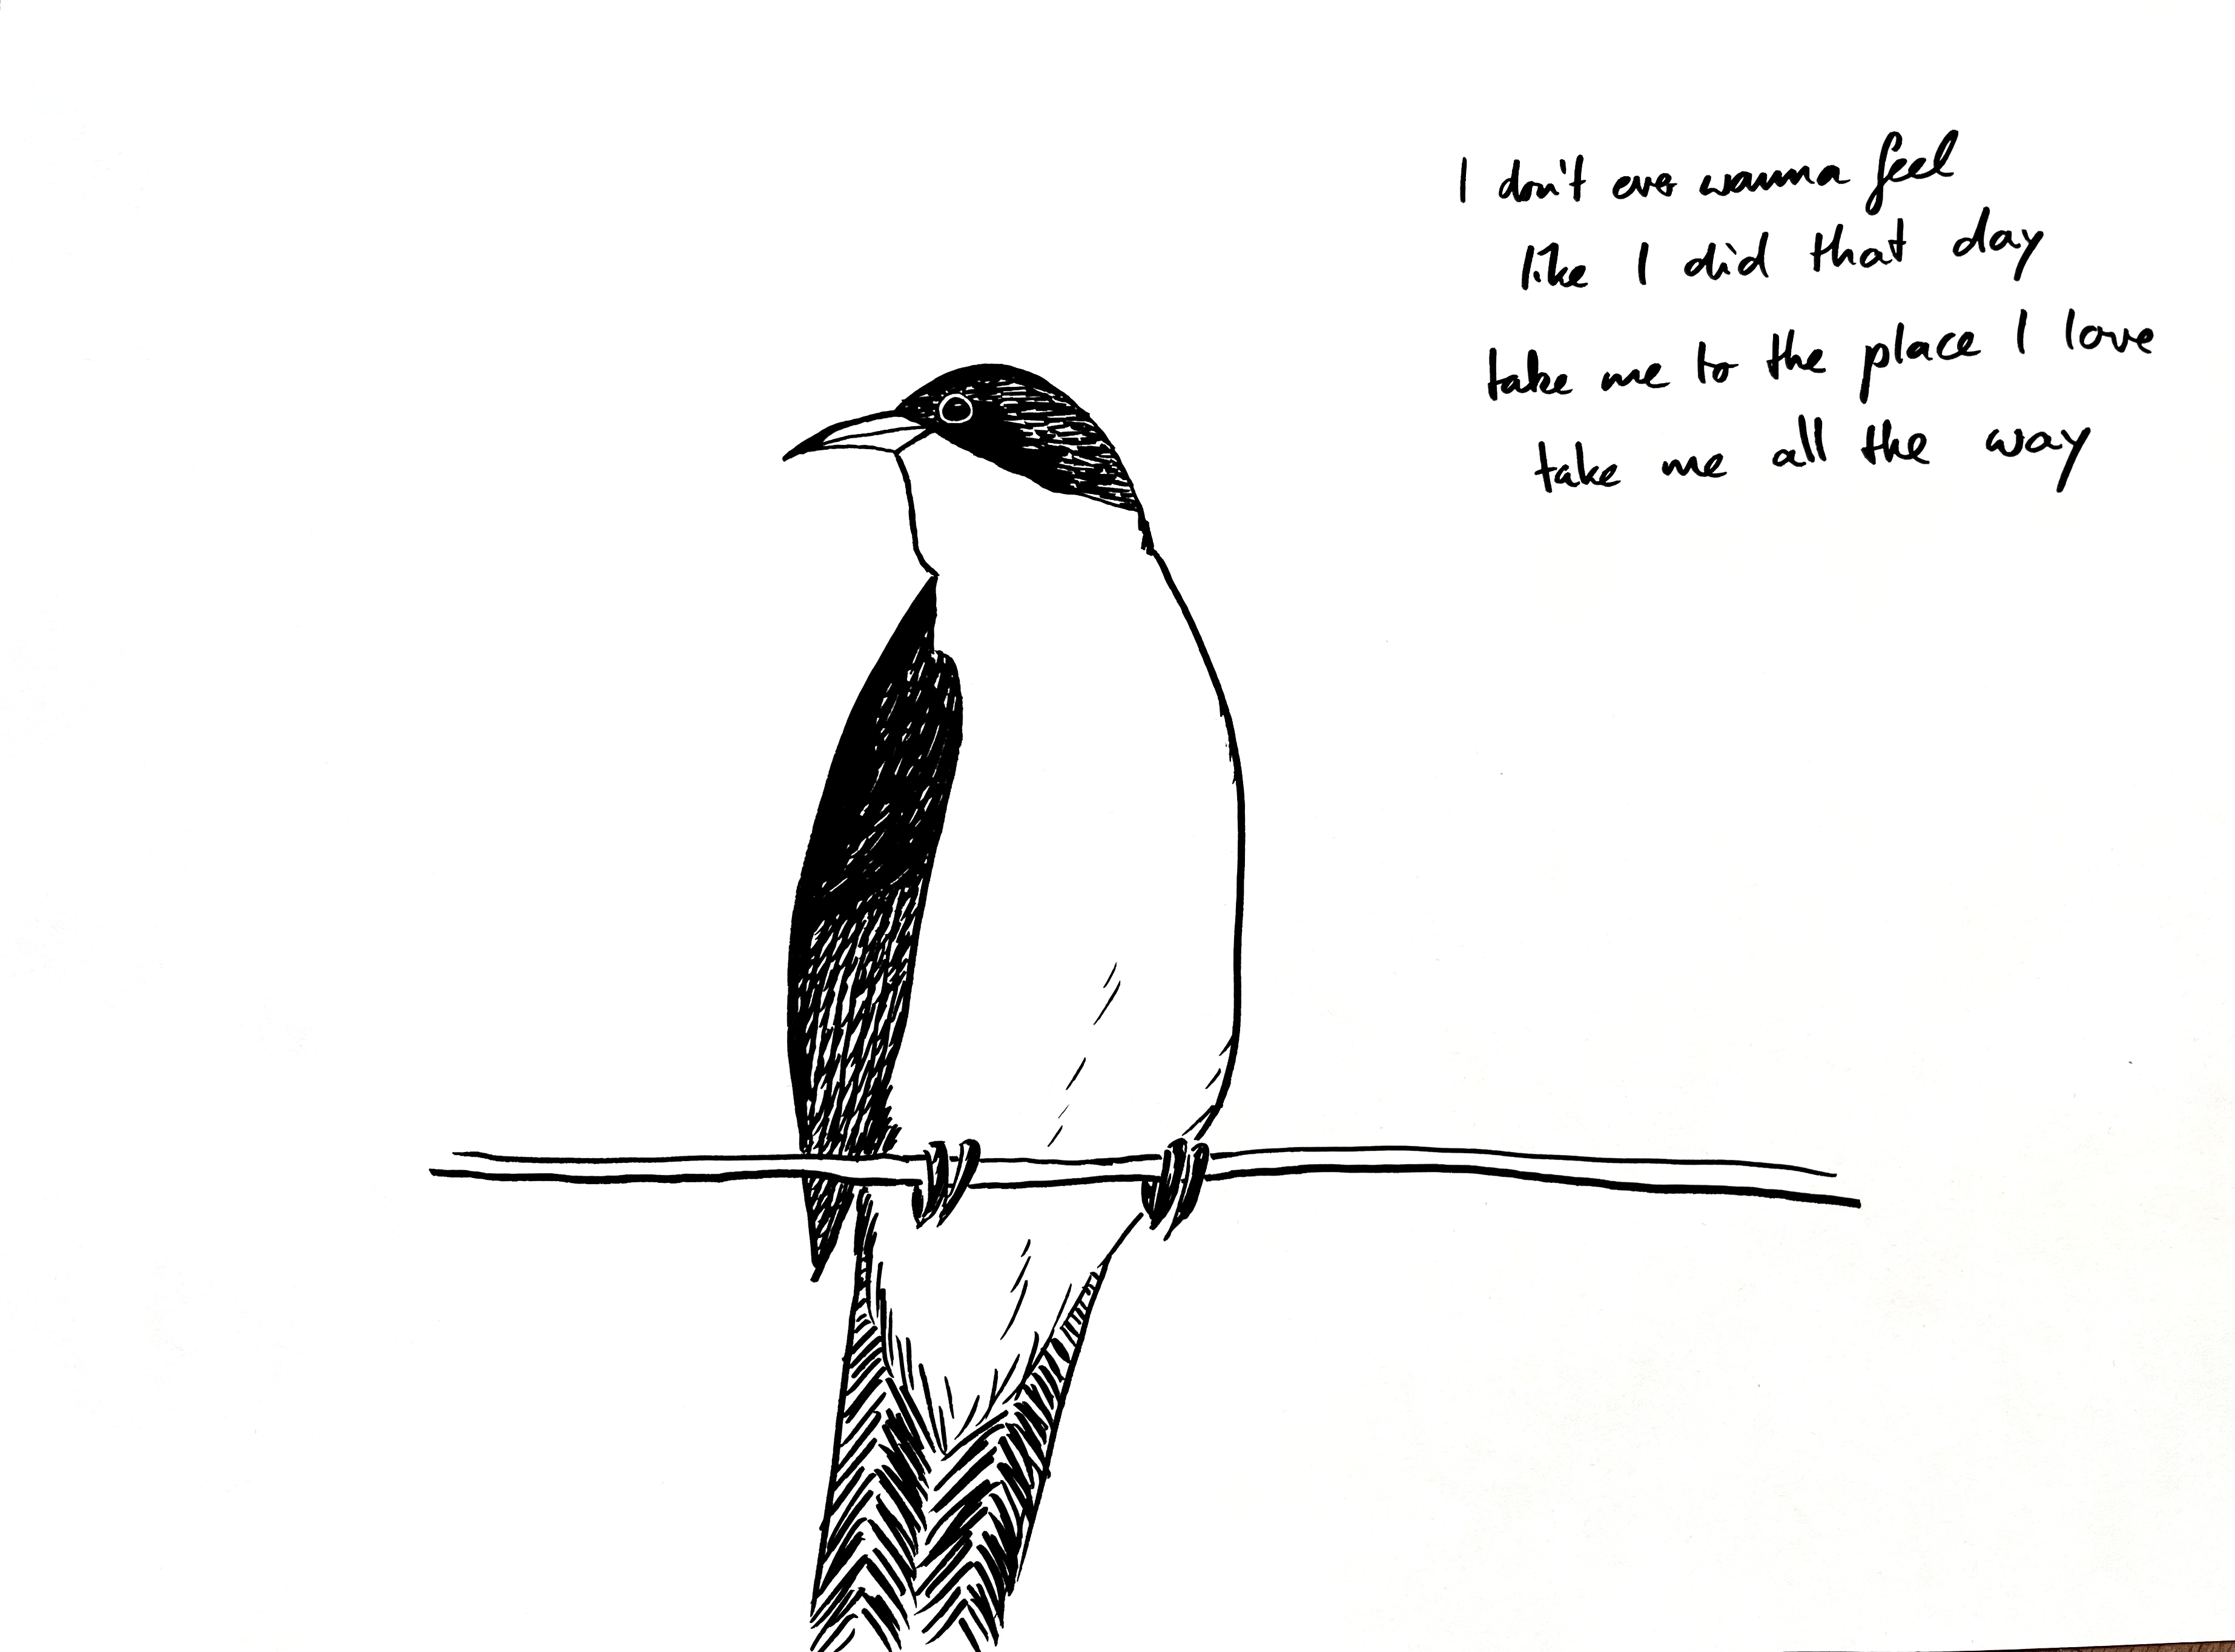 I don't ever wanna feel
like I did that day
take me to the place I love
take me all the way